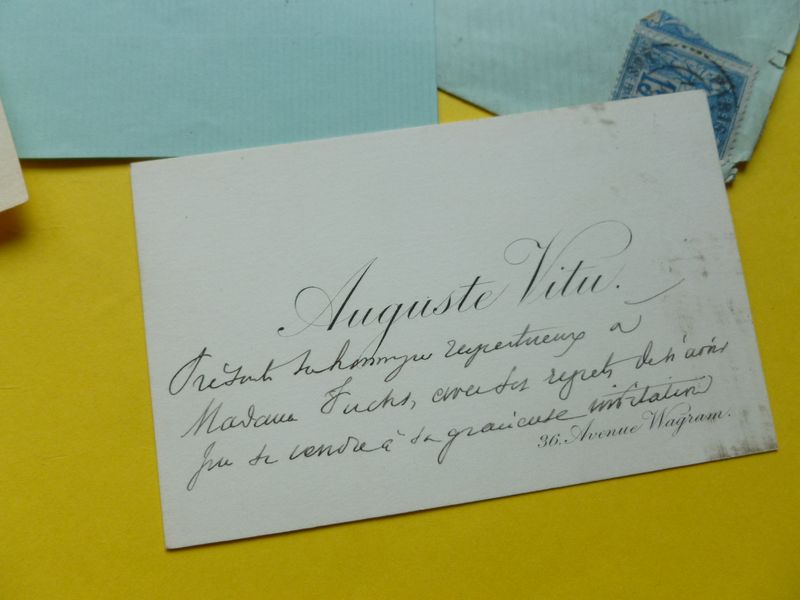 15
Auguste Vitu.
Présente ses hommages respectueux à
Madame Fuchs, avec ses regrets de n'avoir
pu se rendre à sa gracieuse invitation
36. Avenue Wagram.